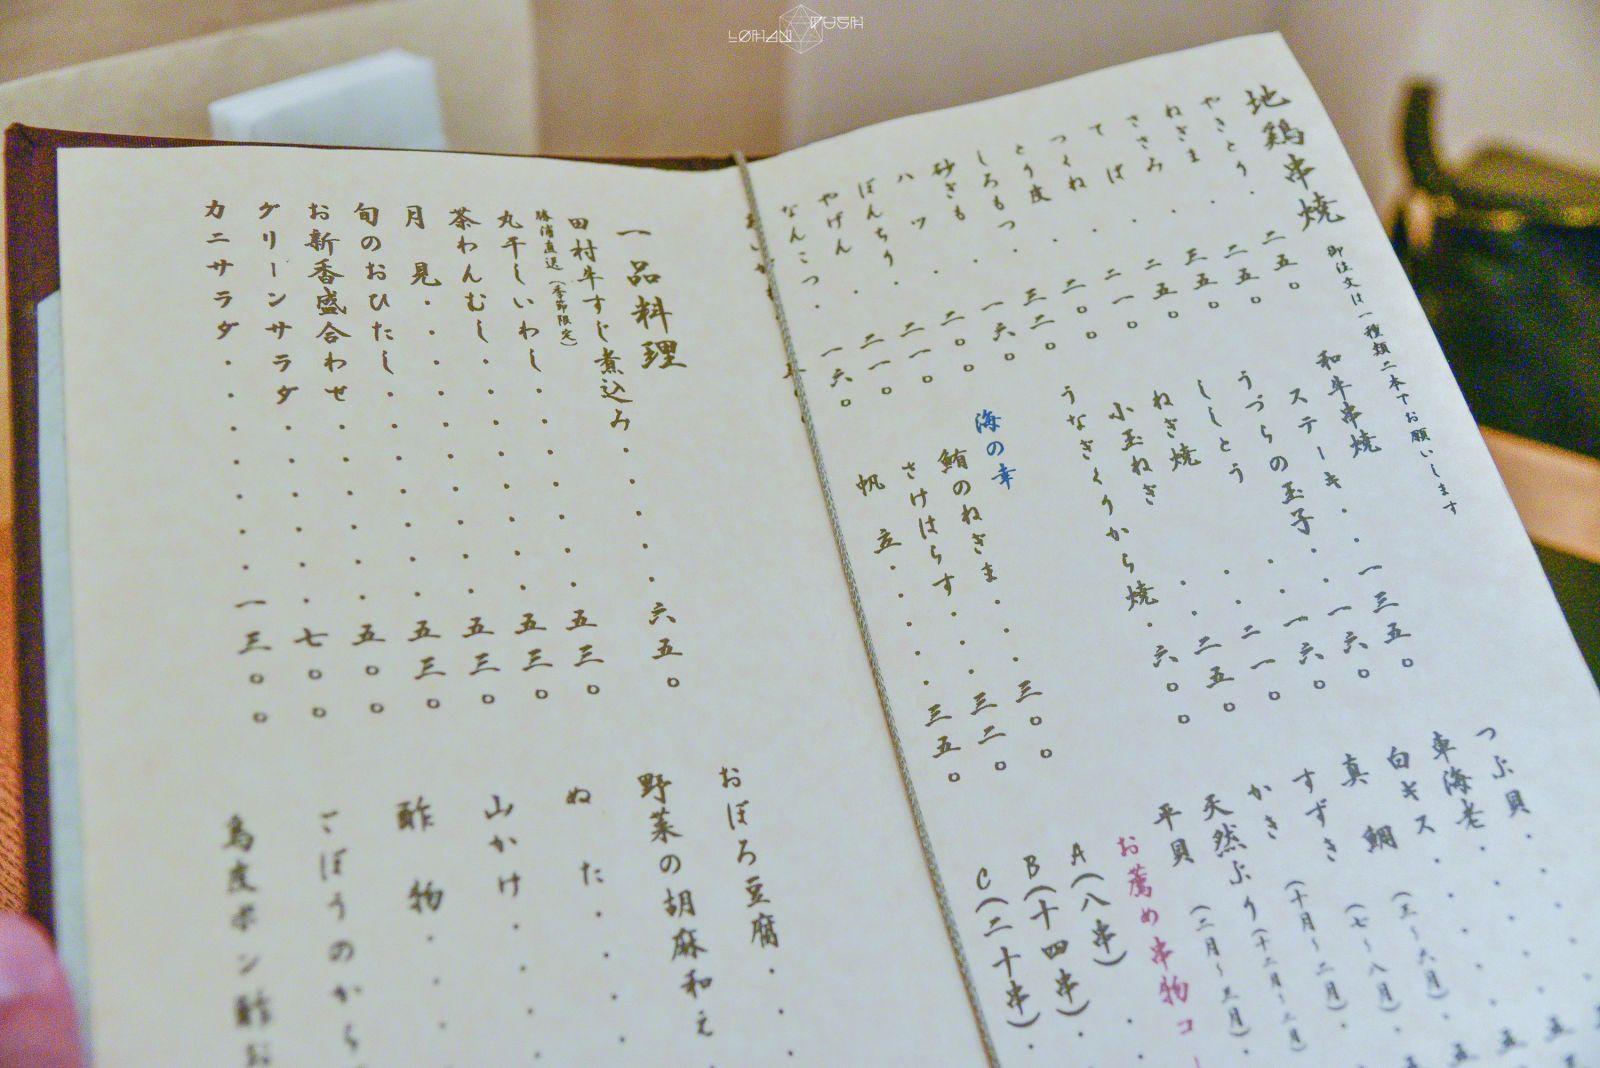 地鶏串焼 御注文は一種類二本でお願いします
やきとり・二五〇
ねぎま・二五〇
ささみ・三五〇
てば・二五〇
つくね・二一〇
とり皮・二〇〇
しろもつ・三二〇
砂ぎも・一六〇
ハツ・二〇〇
ぼんちり・二一〇
やげん・二一〇
なんこつ・一六〇
和牛串焼
ステーキ・・一三五〇
うづらの玉子・・一六〇
ししとう・・一六〇
ねぎ焼・・二一〇
小玉ねぎ・・二五〇
うなぎくりから焼・六〇〇
海の幸
鮪のねぎま・・・三〇〇
さけはらす・・・三二〇
帆立・・・・・三五〇
つぶ貝・・・・
車海老・・・・
白キス・・・・
真鯛(三〜六月)・
すずき(七〜八月)・
かき(十月〜二月)・
天然ぶり(十二月〜二月)
平貝(二月〜三月)・
お薦め串物コー
A(八串)・
B(十四串)・
C(二十串)・
一品料理
田村牛すじ煮込み・・・・・六五〇
勝浦直送(季節限定)
丸干しいわし・・・・・・五三〇
茶わんむし・・・・・・・五三〇
月見・・・・・・・・・五三〇
旬のおひたし・・・・・・五三〇
お新香盛合わせ・・・・・五〇〇
グリーンサラダ・・・・・七〇〇
カニサラダ・・・・・・・一三〇〇
おぼろ豆腐・・・
野菜の胡麻和え・
ぬた・・・・・
山かけ・・・・
酢物・・・・
ごぼうのから
鳥皮ポン酢お
LØHAN RUSH